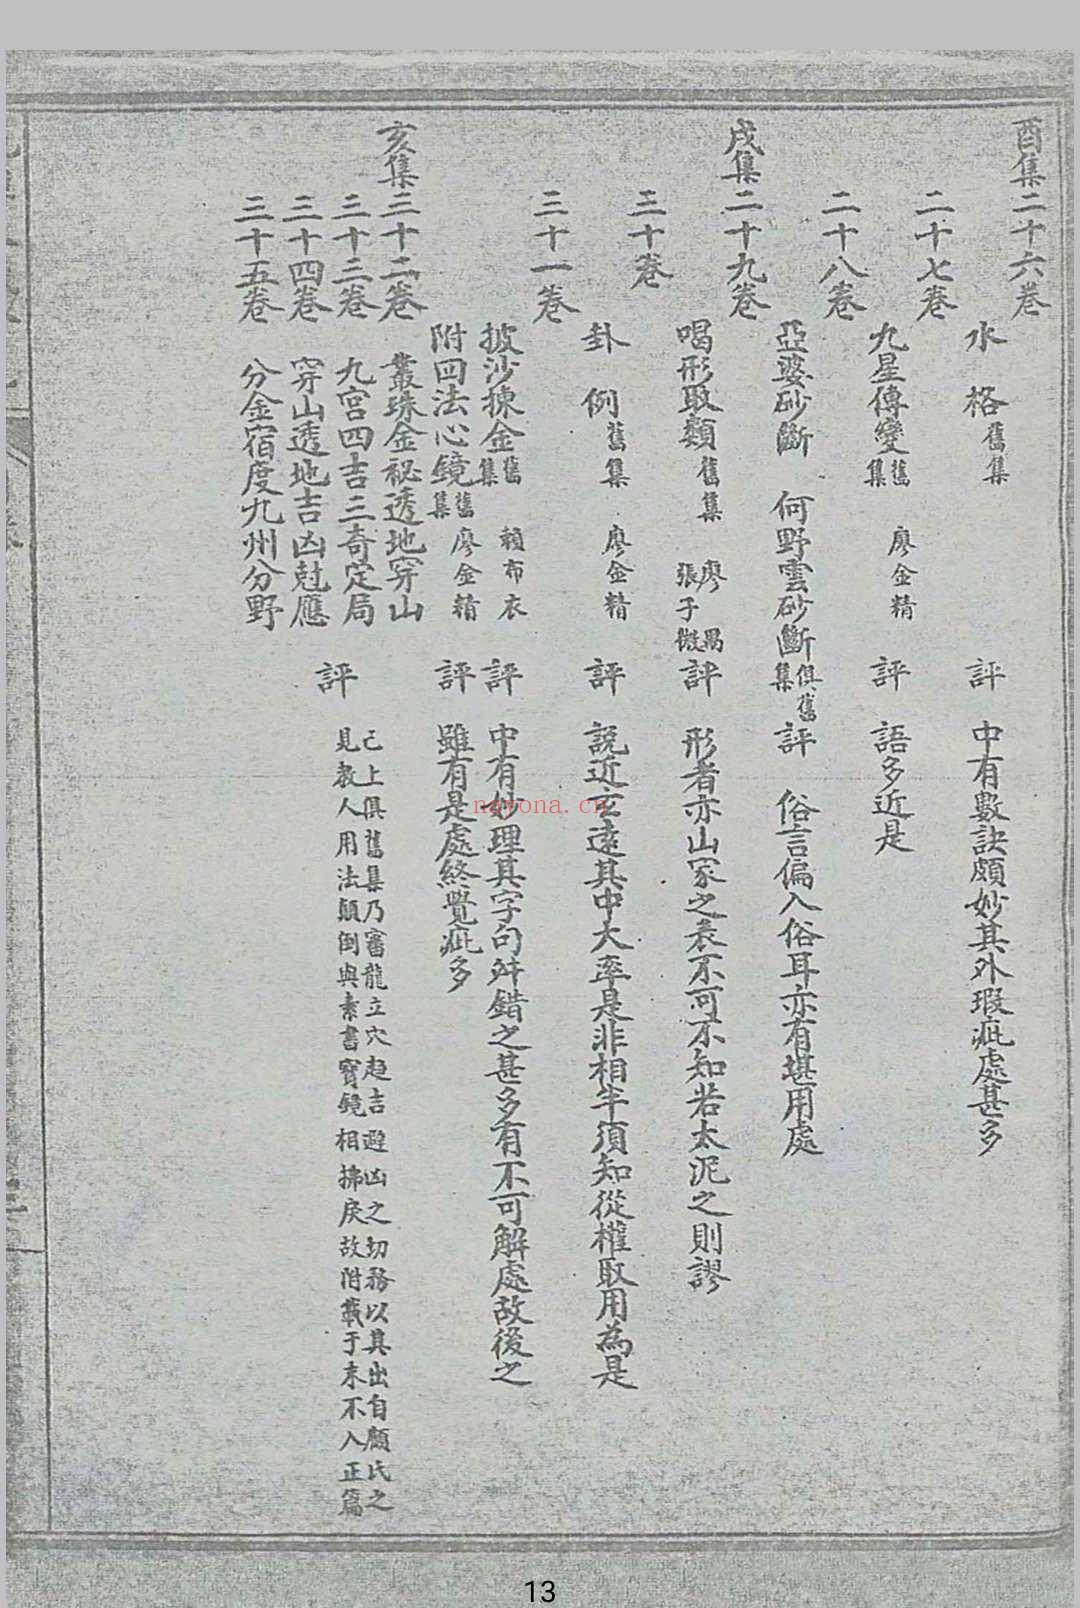 酉集二十六卷
水格舊集 評 中有數訣頗妙其外瑕疵處甚多
二十七卷
九星傳變舊集 廖金精 評 語多近是
二十八卷
亞婆砂斷 何野雲砂斷俱舊集 評 俗言偏入俗耳亦有堪用處
戌集二十九卷
喝形取類舊集 廖禹 張子微 評 形者亦山家之表不可不知若太泥之則謬
三十卷
卦例舊集 廖金精 評 說近玄遠其中大率是非相半須知從權取用為是
三十一卷
披沙揀金舊集 賴布衣 評 中有妙理其字句舛錯之甚多有不可解處故後之
附四法心鏡舊集 廖金精 評 雖有是處終覺疵多
亥集三十二卷 叢珠金秘透地穿山
三十三卷 九宮四吉三奇定局
三十四卷 穿山透地吉凶尅應
三十五卷 分金宿度九州分野
評 己上俱舊集乃審龍立穴趨吉避凶之切務以其出自顧氏之
見教人用法顛倒與素書寶鏡相拂戾故附載于末不入正篇
nayona.cn
13